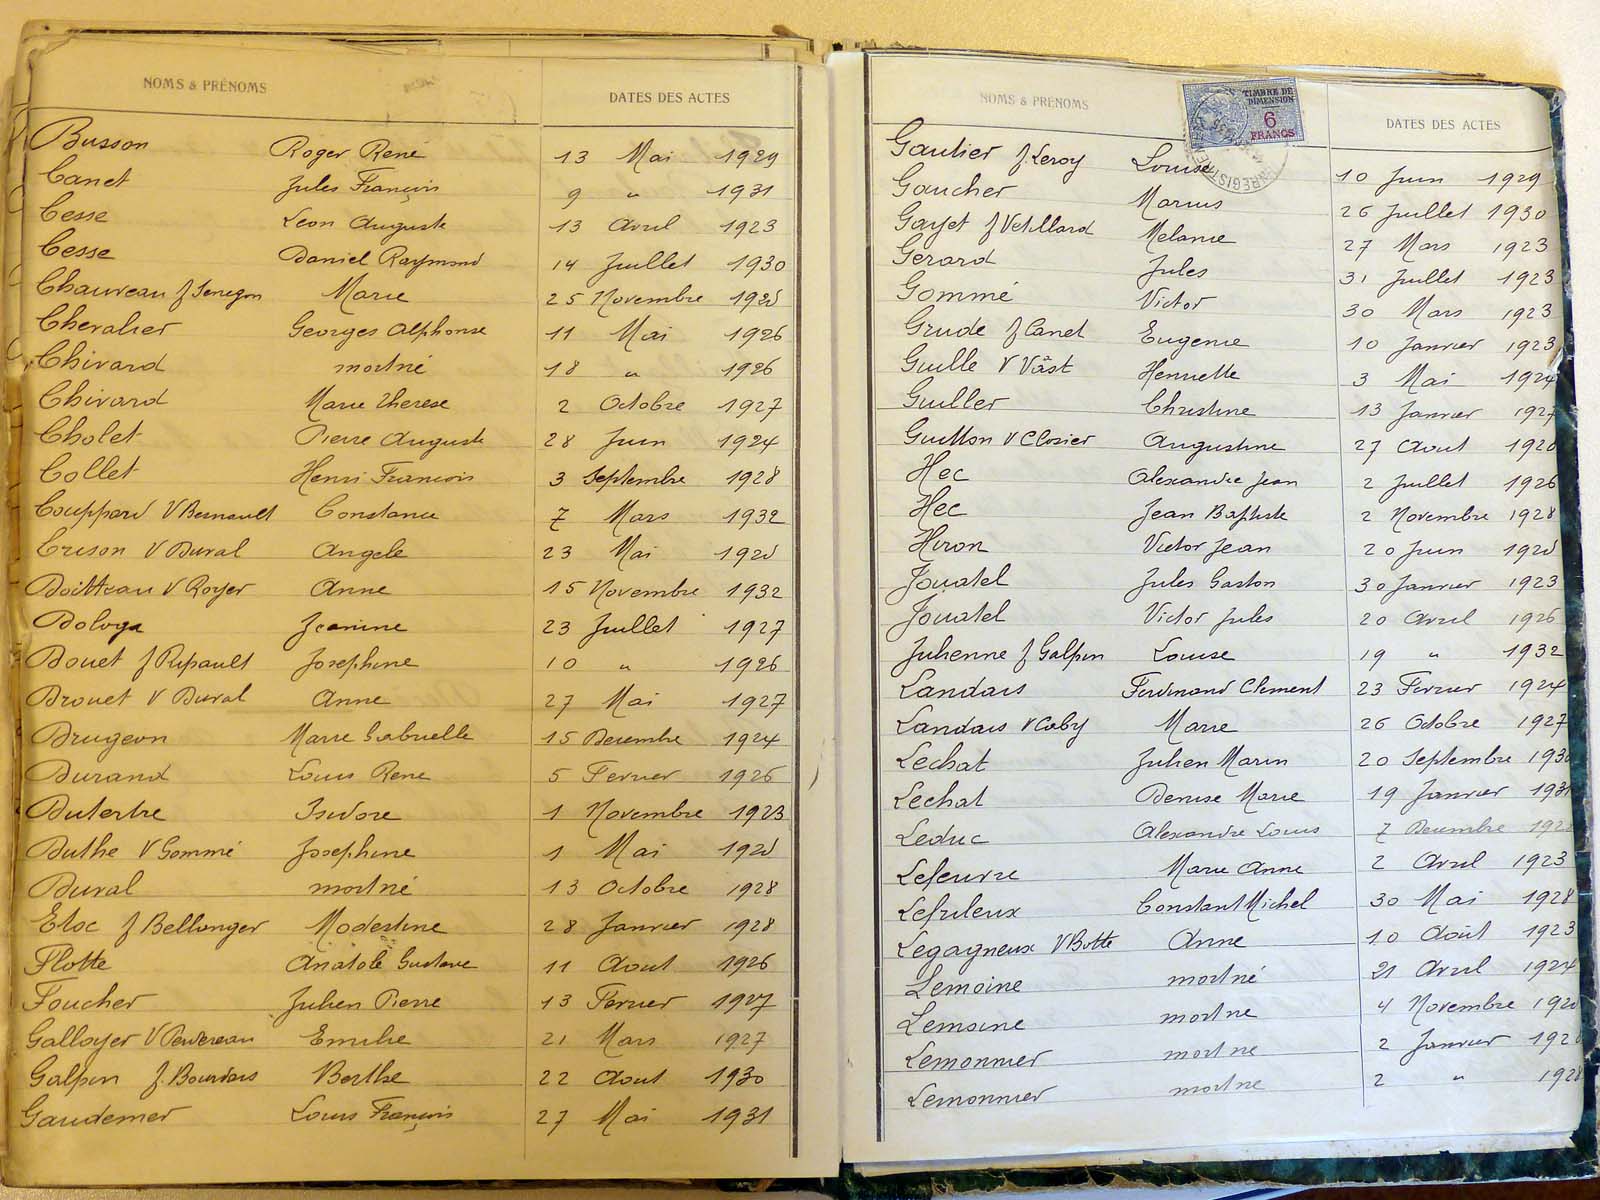 NOMS & PRÉNOMS DATES DES ACTES
Busson Roger René 13 Mai 1929
Canet Jules François 9 " 1931
Cesse Leon Auguste 13 Avril 1923
Cesse Daniel Raymond 14 Juillet 1930
Chauveau f Senegon Marie 25 Novembre
Chevalier Georges Alphonse 11 Mai 1926
Chivard mort né 18 " 1926
Chivard Marie Therese 2 Octobre 1927
Cholet Pierre Auguste 28 Juin 1924
Collet Henri François 3 Septembre 1928
Couppard V Besnault Constance 7 Mars 1932
Crison V Duval Angele 23 Mai
Doitteau V Royer Anne 15 Novembre 1932
Jeanine 23 Juillet 1927
Douet f Ripault Josephine 10 " 1926
Drouet V Duval Anne 27 Mai 1927
Drugeon Marie Gabrielle 15 Decembre 1924
Durand Louis Rene 5 Fevrier 1926
Dutertre Isidore 1 Novembre 1923
Duthe V Gommé Josephine 1 Mai
Duval mort né 13 Octobre 1928
Etoc f Bellanger Modestine 28 Janvier 1928
Flotte Anatole Gustave 11 Aout 1926
Foucher Julien Pierre 13 Fevrier 1927
Galloyer V Emilie 21 Mars 1927
Galpin f. Bourdais Berthe 22 Aout 1930
Gaudemer Louis François 27 Mai 1931
NOMS & PRÉNOMS DATES DES ACTES
TIMBRE DE
DIMENSION
6
FRANCS
Gautier f. Leroy Louise 10 Juin 1929
Gaucher Marius 26 Juillet 1930
Gayet f Vetillard Melanie 27 Mars 1923
Gerard Jules 31 Juillet 1923
Gommé Victor 30 Mars 1923
Grude f Canet Eugenie 10 Janvier 1923
Guille V Vâst Henriette 3 Mai 1924
Guiller Christine 13 Janvier 1927
Guitton V Closier Augustine 27 Aout
Hec Alexandre Jean 2 Juillet 1926
Hec Jean Baptiste 2 Novembre 1928
Hiron Victor Jean 20 Juin
Jouatel Jules Gaston 30 Janvier 1923
Jouatel Victor Jules 20 Avril 1926
Julienne f Galpin Louise 19 " 1932
Landais Ferdinand Clement 23 Fevrier 1924
Landais V Caby Marie 26 Octobre 1927
Lechat Julien Marin 20 Septembre
Lechat Denise Marie 19 Janvier
Leduc Alexandre Louis 7 Decembre
Lefeuvre Marie Anne 2 Avril 1923
Lefuleux Constant Michel 30 Mai 1928
Legagneux V Botte Anne 10 Août 1923
Lemoine mort né 21 Avril 1924
Lemoine mort né 4 Novembre
Lemonnier mort né 2 Janvier
Lemonnier mort né 2 " 1928